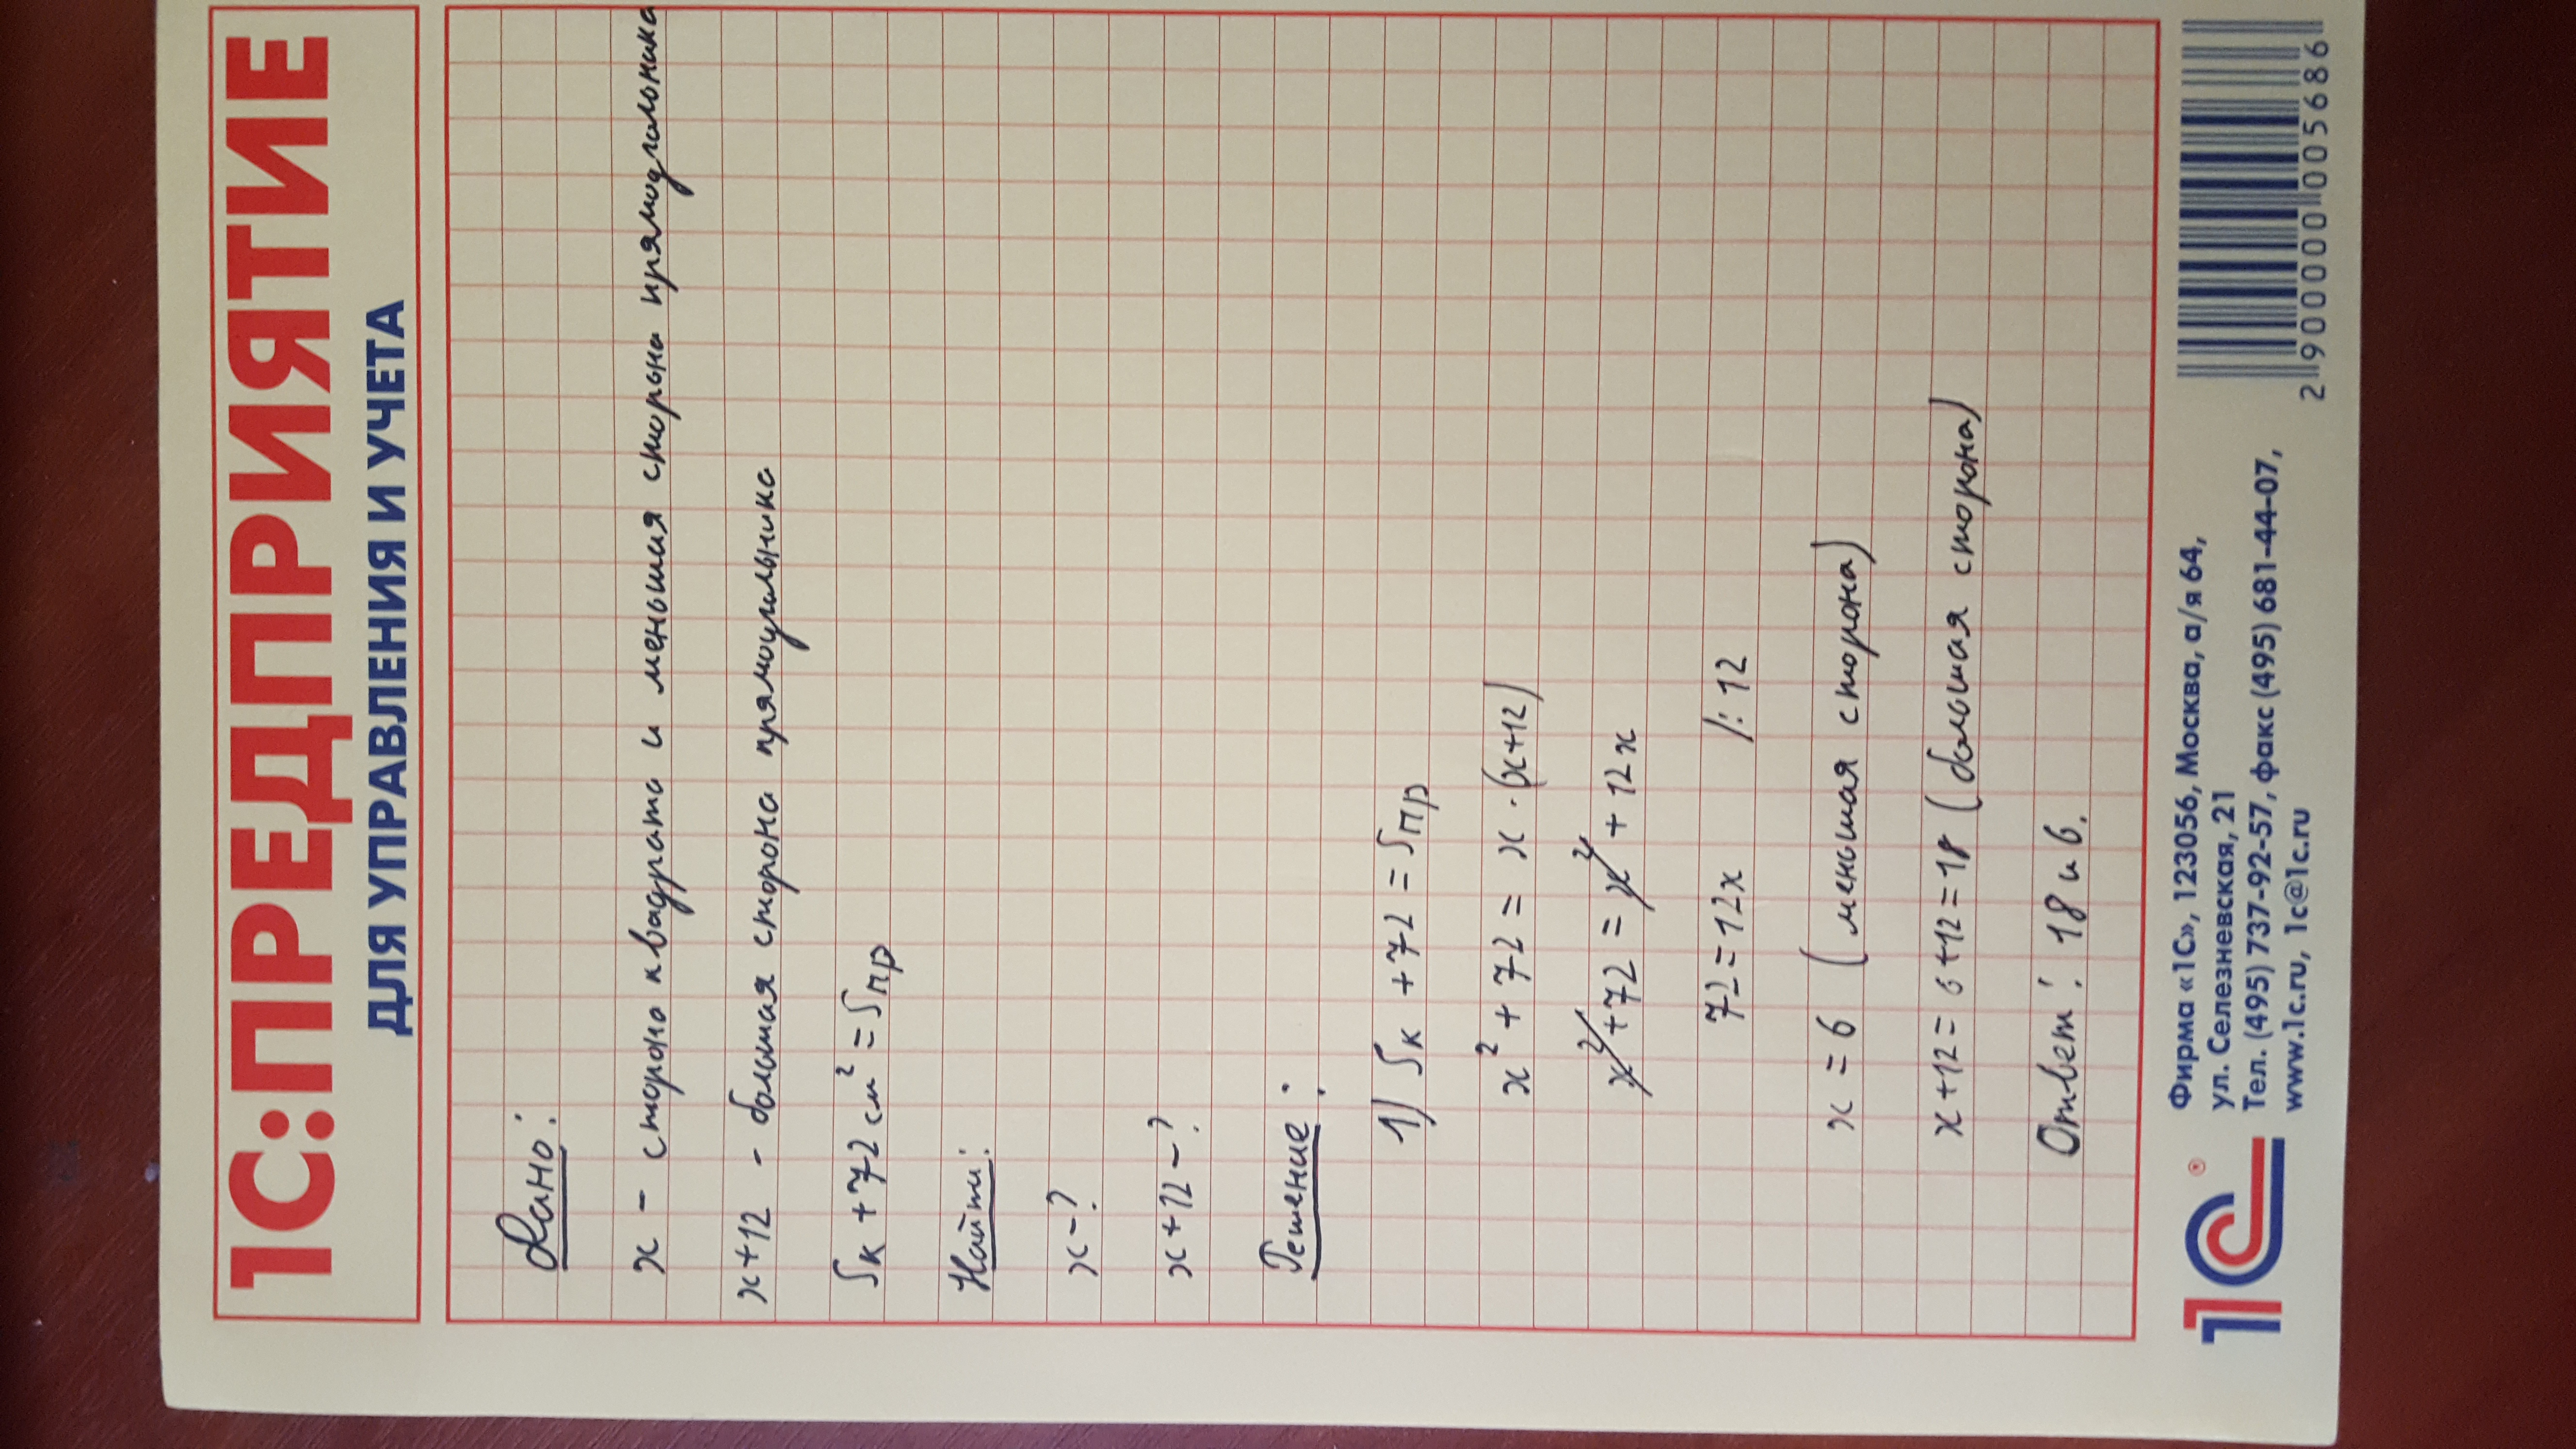 1С:ПРЕДПРИЯТИЕ
ДЛЯ УПРАВЛЕНИЯ И УЧЕТА
Дано:
x - сторона квадрата и меньшая сторона прямоугольника
x+12 - большая сторона прямоугольника
Sк + 72 см² = Sпр
Найти:
x - ?
x+12 - ?
Решение:
1) Sк + 72 = Sпр
x² + 72 = x · (x+12)
x² + 72 = x² + 12x
72 = 12x /: 12
x = 6 (меньшая сторона)
x+12 = 6+12 = 18 (большая сторона)
Ответ: 18 и 6.
1С®
Фирма «1С», 123056, Москва, а/я 64,
ул. Селезневская, 21
Тел. (495) 737-92-57, факс (495) 681-44-07,
www.1c.ru, 1c@1c.ru
2 900000 005686